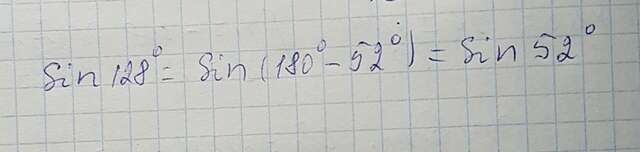 Sin 128° = Sin (180° - 52°) = Sin 52°